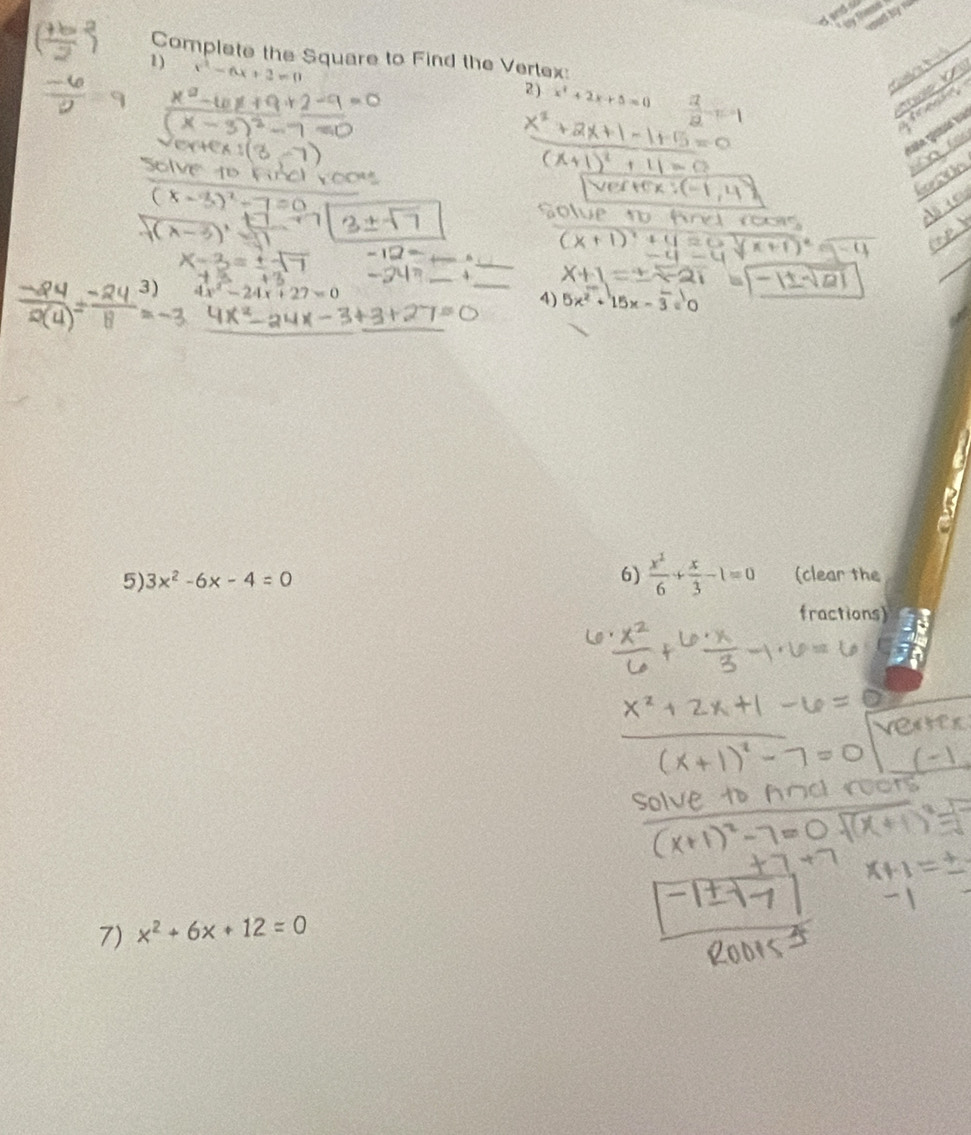 Complete the Square to Find the Vertex:
(+b/2)²
-6/2 = 9
1) x² - 6x + 2 = 0
x² - 6x + 9 + 2 - 9 = 0
(x - 3)² - 7 = 0
Vertex: (3, -7)
Solve to find roots
(x - 3)² - 7 = 0
+7 +7
3 ± √7
√(x - 3)² = √7
x - 3 = ± √7
+3 +3
-12 = __ · __
-24 = __ + __
2) x² + 2x + 5 = 0
2/2 = 1
x² + 2x + 1 - 1 + 5 = 0
(x + 1)² + 4 = 0
Vertex: (-1, 4)
Solve to find roots
(x + 1)² + 4 = 0 √(x + 1)² = √-4
-4 -4
x + 1 = ± √-2i = -1 ± √2i
3) 4x² - 24x + 27 = 0
-24/2(4) = -24/8 = -3
4x² - 24x - 3 + 3 + 27 = 0
4) 5x² + 15x - 3 = 0
5) 3x² - 6x - 4 = 0
6) x²/6 + x/3 - 1 = 0 (clear the
fractions)
6 · x²/6 + 6 · x/3 - 1 · 6 = 6
x² + 2x + 1 - 6 = 0
(x + 1)² - 7 = 0
vertex
(-1
solve to find roots
(x + 1)² - 7 = 0 √(x + 1)² = √
+7 +7
x + 1 = ±
-1
-1 ± √7
Roots
7) x² + 6x + 12 = 0